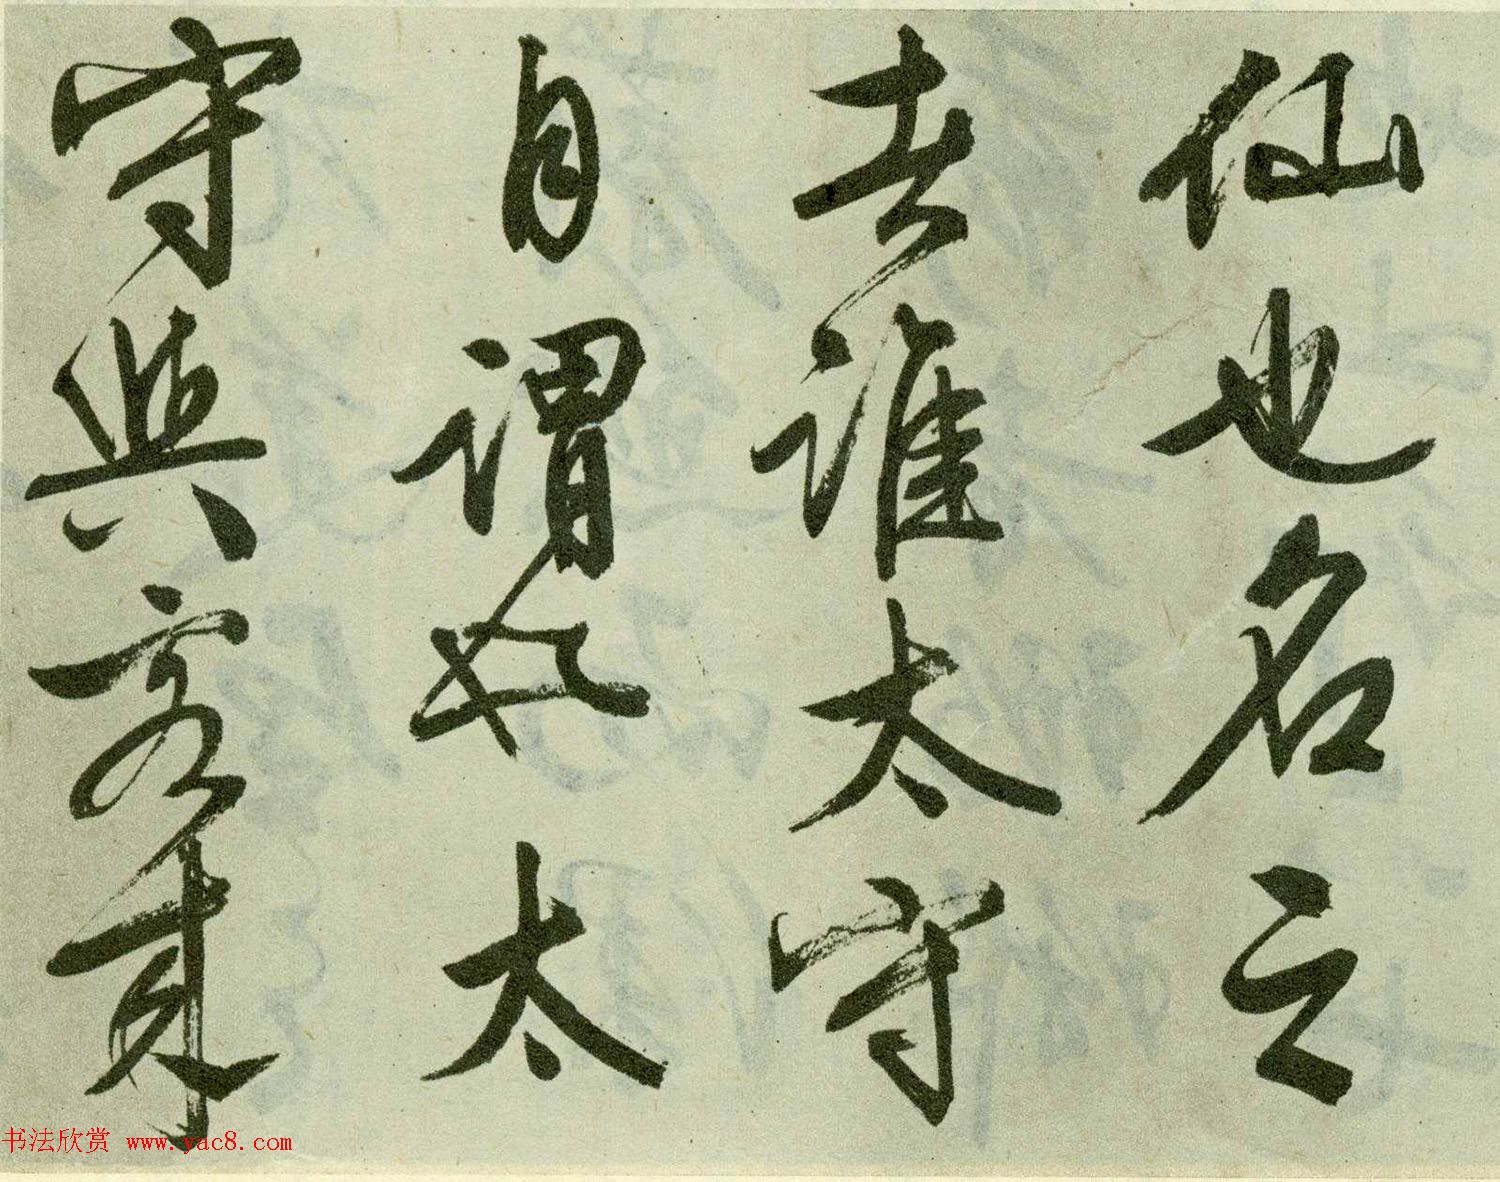 仙也名之
者誰太守
自謂也太
守與客來
书法欣赏 www.yac8.com